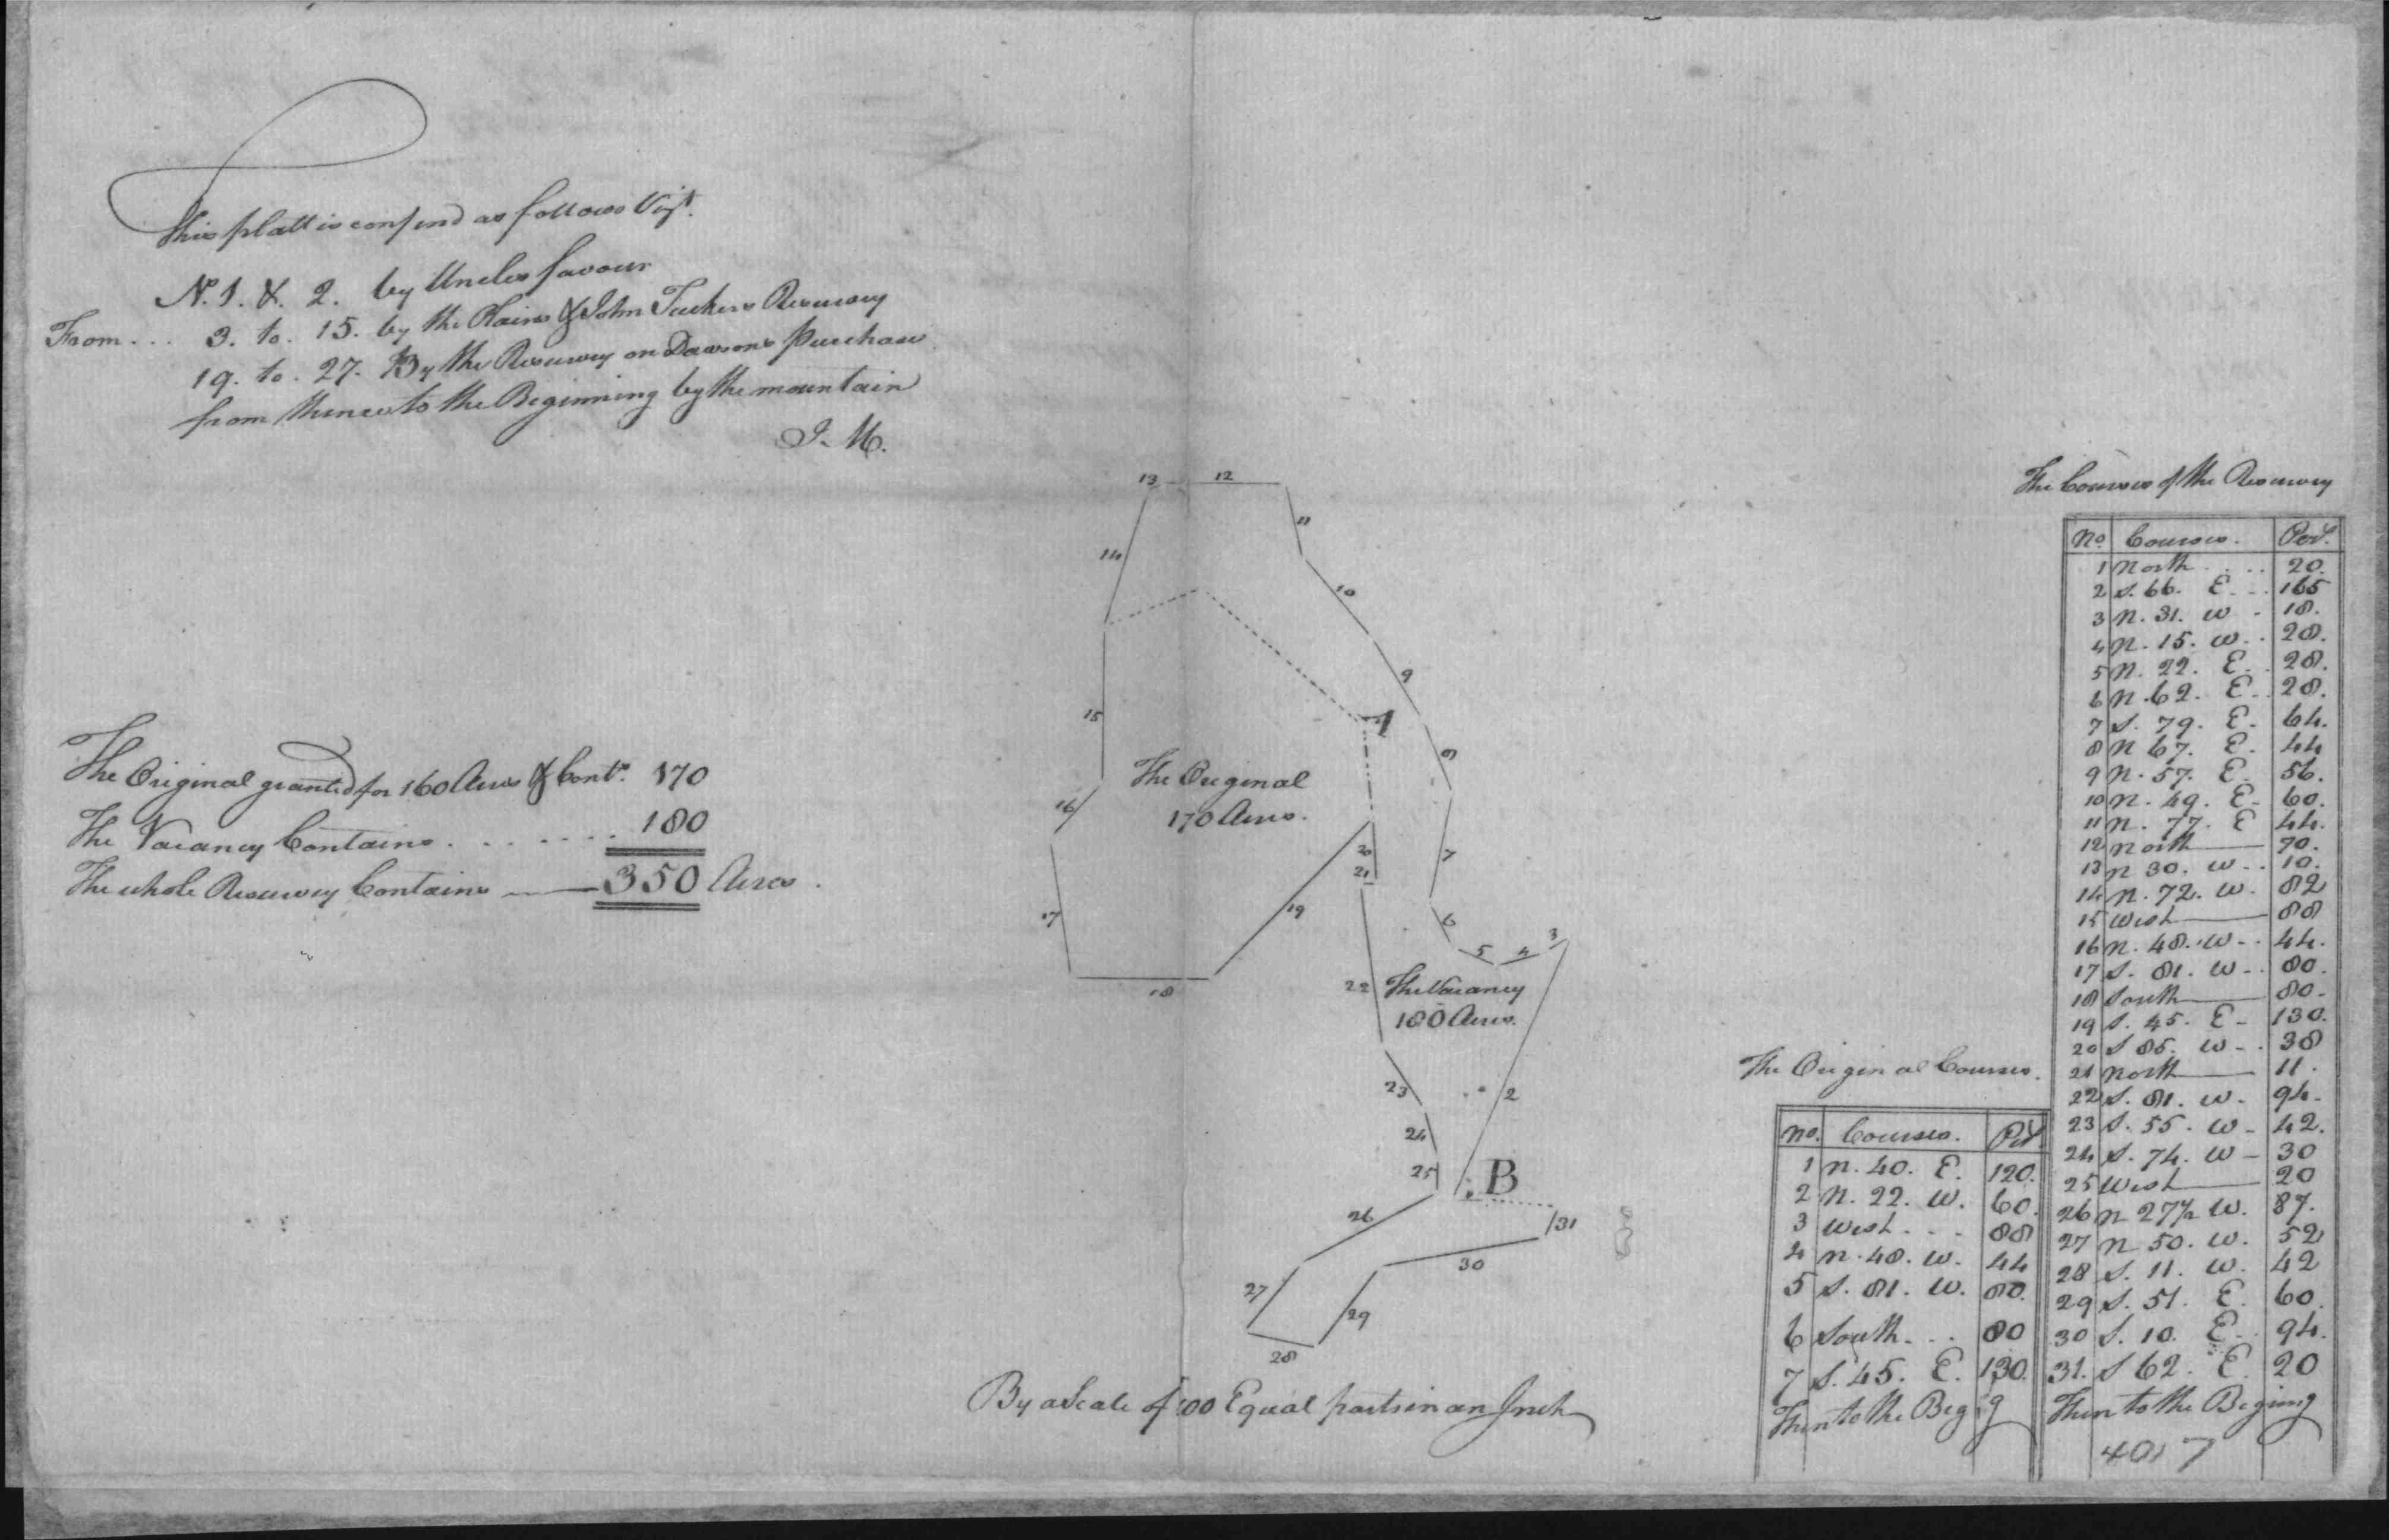 This platt is confind as follows Vizt.
No. 1. & 2. by Uncles favour
From . . . 3. to. 15. by the Plains & John Tuckers Resurvey
19. to. 27. By the Resurvey on Dawsons purchase
from thence to the Beginning by the mountain
J. M.
The Original granted for 160 Acres & Conts. 170
The Vacancy Contains . . . . . . 180
The whole Resurvey Contains —— 350 Acres.
13 12
11
14
10
9
A
8
15
The Original
170 Acres.
16
7
20
21
19
17
6
5 4 3
18
22
The Vacancy
180 Acres.
23
2
24
25
B
26
31
30
27
29
28
By a Scale of 100 Equal parts in an Inch
The Original Courses.
No. Courses. Per.
1 N. 40. E. 120.
2 N. 22. W. 60.
3 West . . . 88
4 N. 48. W. 44
5 S. 81. W. 80.
6 South . . . 80
7 S. 45. E. 130.
Then to the Beging
The Courses of the Resurvey
No. Courses. Per.
1 North . . . 20.
2 S. 66. E. . . 165
3 N. 31. W . 18.
4 N. 15. W. . 28.
5 N. 22. E. . 28.
6 N. 62. E. . 28.
7 S. 79. E. 64.
8 N 67. E. 44
9 N. 57. E. 56.
10 N. 49. E. 60.
11 N. 77. E 44.
12 North —— 70.
13 N 30. W. . . 10.
14 N. 72. W. 82
15 West —— 88
16 N. 48. W. . 44.
17 S. 81. W. . 80.
18 South —— 80.
19 S. 45. E. 130.
20 S 85. W. . 38
21 North —— 11.
22 S. 81. W. 94.
23 S. 55. W. 42.
24 S. 74. W — 30
25 West —— 20
26 N 27½ W. 87.
27 N 50. W. 52
28 S. 11. W. 42
29 S. 51. E. 60.
30 S. 10. E. . 94.
31. S 62. E. 20
Then to the Begining